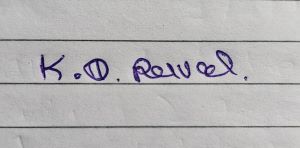 K.D. Rawal.